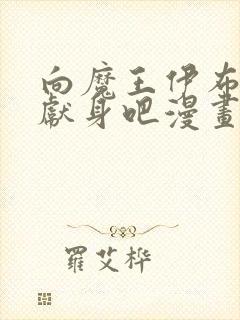 向魔王伊布
獻身吧漫畫
羅艾桦